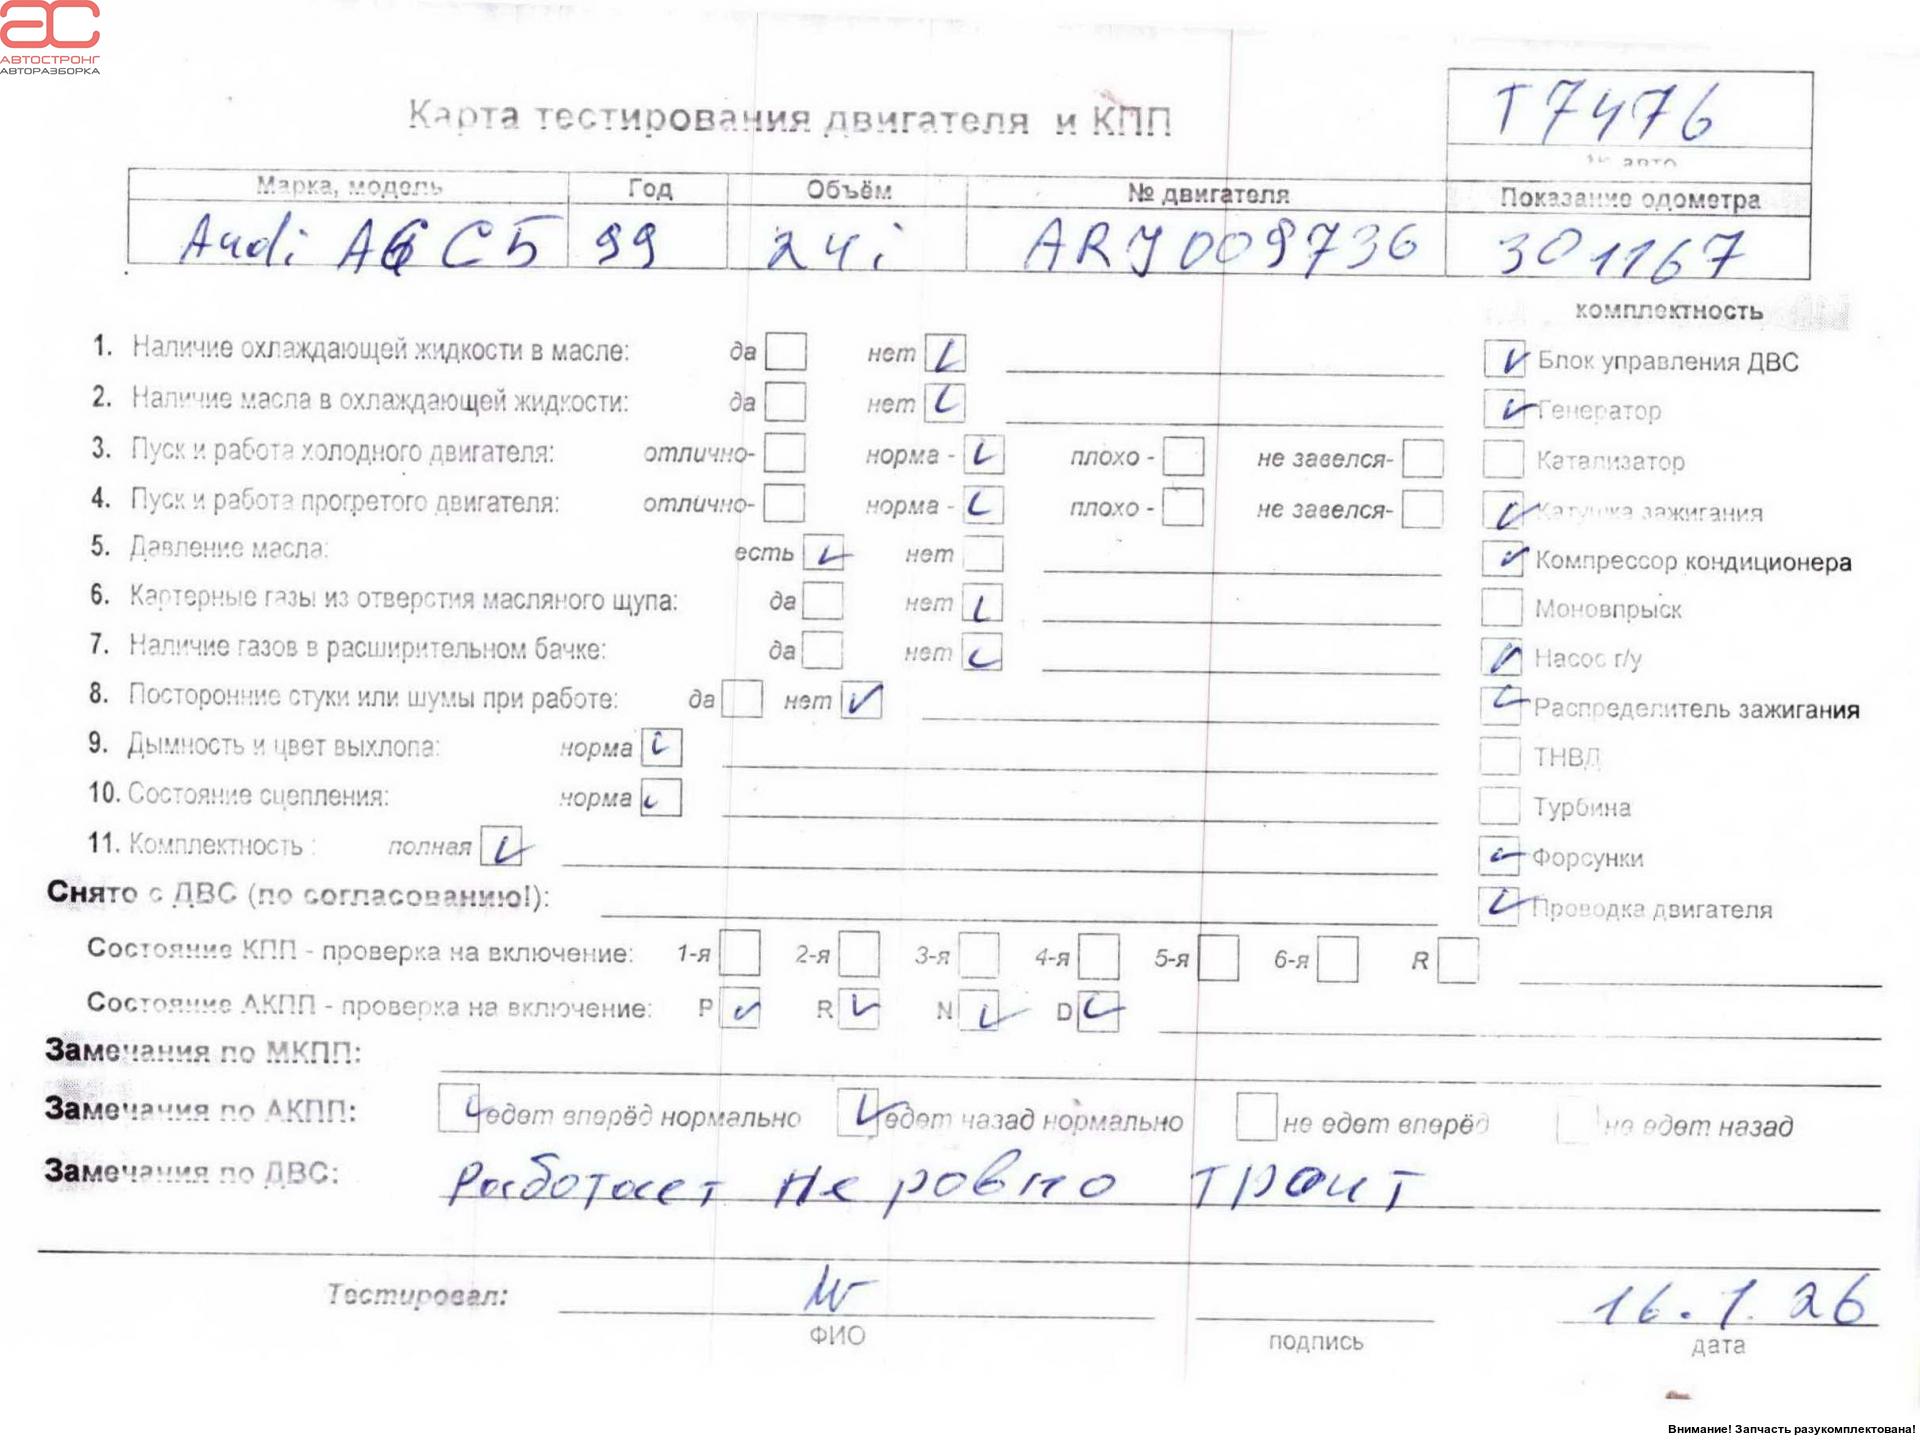 АС
АВТОСТРОНГ
АВТОРАЗБОРКА
Карта тестирования двигателя и КПП
Т7476
№ авто
Марка, модель Год Объём № двигателя Показание одометра
Audi A6 C5 99 24i ARJ009736 301167
комплектность
1. Наличие охлаждающей жидкости в масле: да нет Блок управления ДВС
2. Наличие масла в охлаждающей жидкости: да нет Генератор
3. Пуск и работа холодного двигателя: отлично- норма - плохо - не завелся- Катализатор
4. Пуск и работа прогретого двигателя: отлично- норма - плохо - не завелся- Катушка зажигания
5. Давление масла: есть нет Компрессор кондиционера
6. Картерные газы из отверстия масляного щупа: да нет Моновпрыск
7. Наличие газов в расширительном бачке: да нет Насос г/у
8. Посторонние стуки или шумы при работе: да нет Распределитель зажигания
9. Дымность и цвет выхлопа: норма ТНВД
10. Состояние сцепления: норма Турбина
11. Комплектность : полная Форсунки
Снято с ДВС (по согласованию!): Проводка двигателя
Состояние КПП - проверка на включение: 1-я 2-я 3-я 4-я 5-я 6-я R
Состояние АКПП - проверка на включение: P R N D
Замечания по МКПП:
Замечания по АКПП: едет вперёд нормально едет назад нормально не едет вперёд не едет назад
Замечания по ДВС: Работает не ровно троит
Тестировал: 16.1.26
ФИО подпись дата
Внимание! Запчасть разукомплектована!